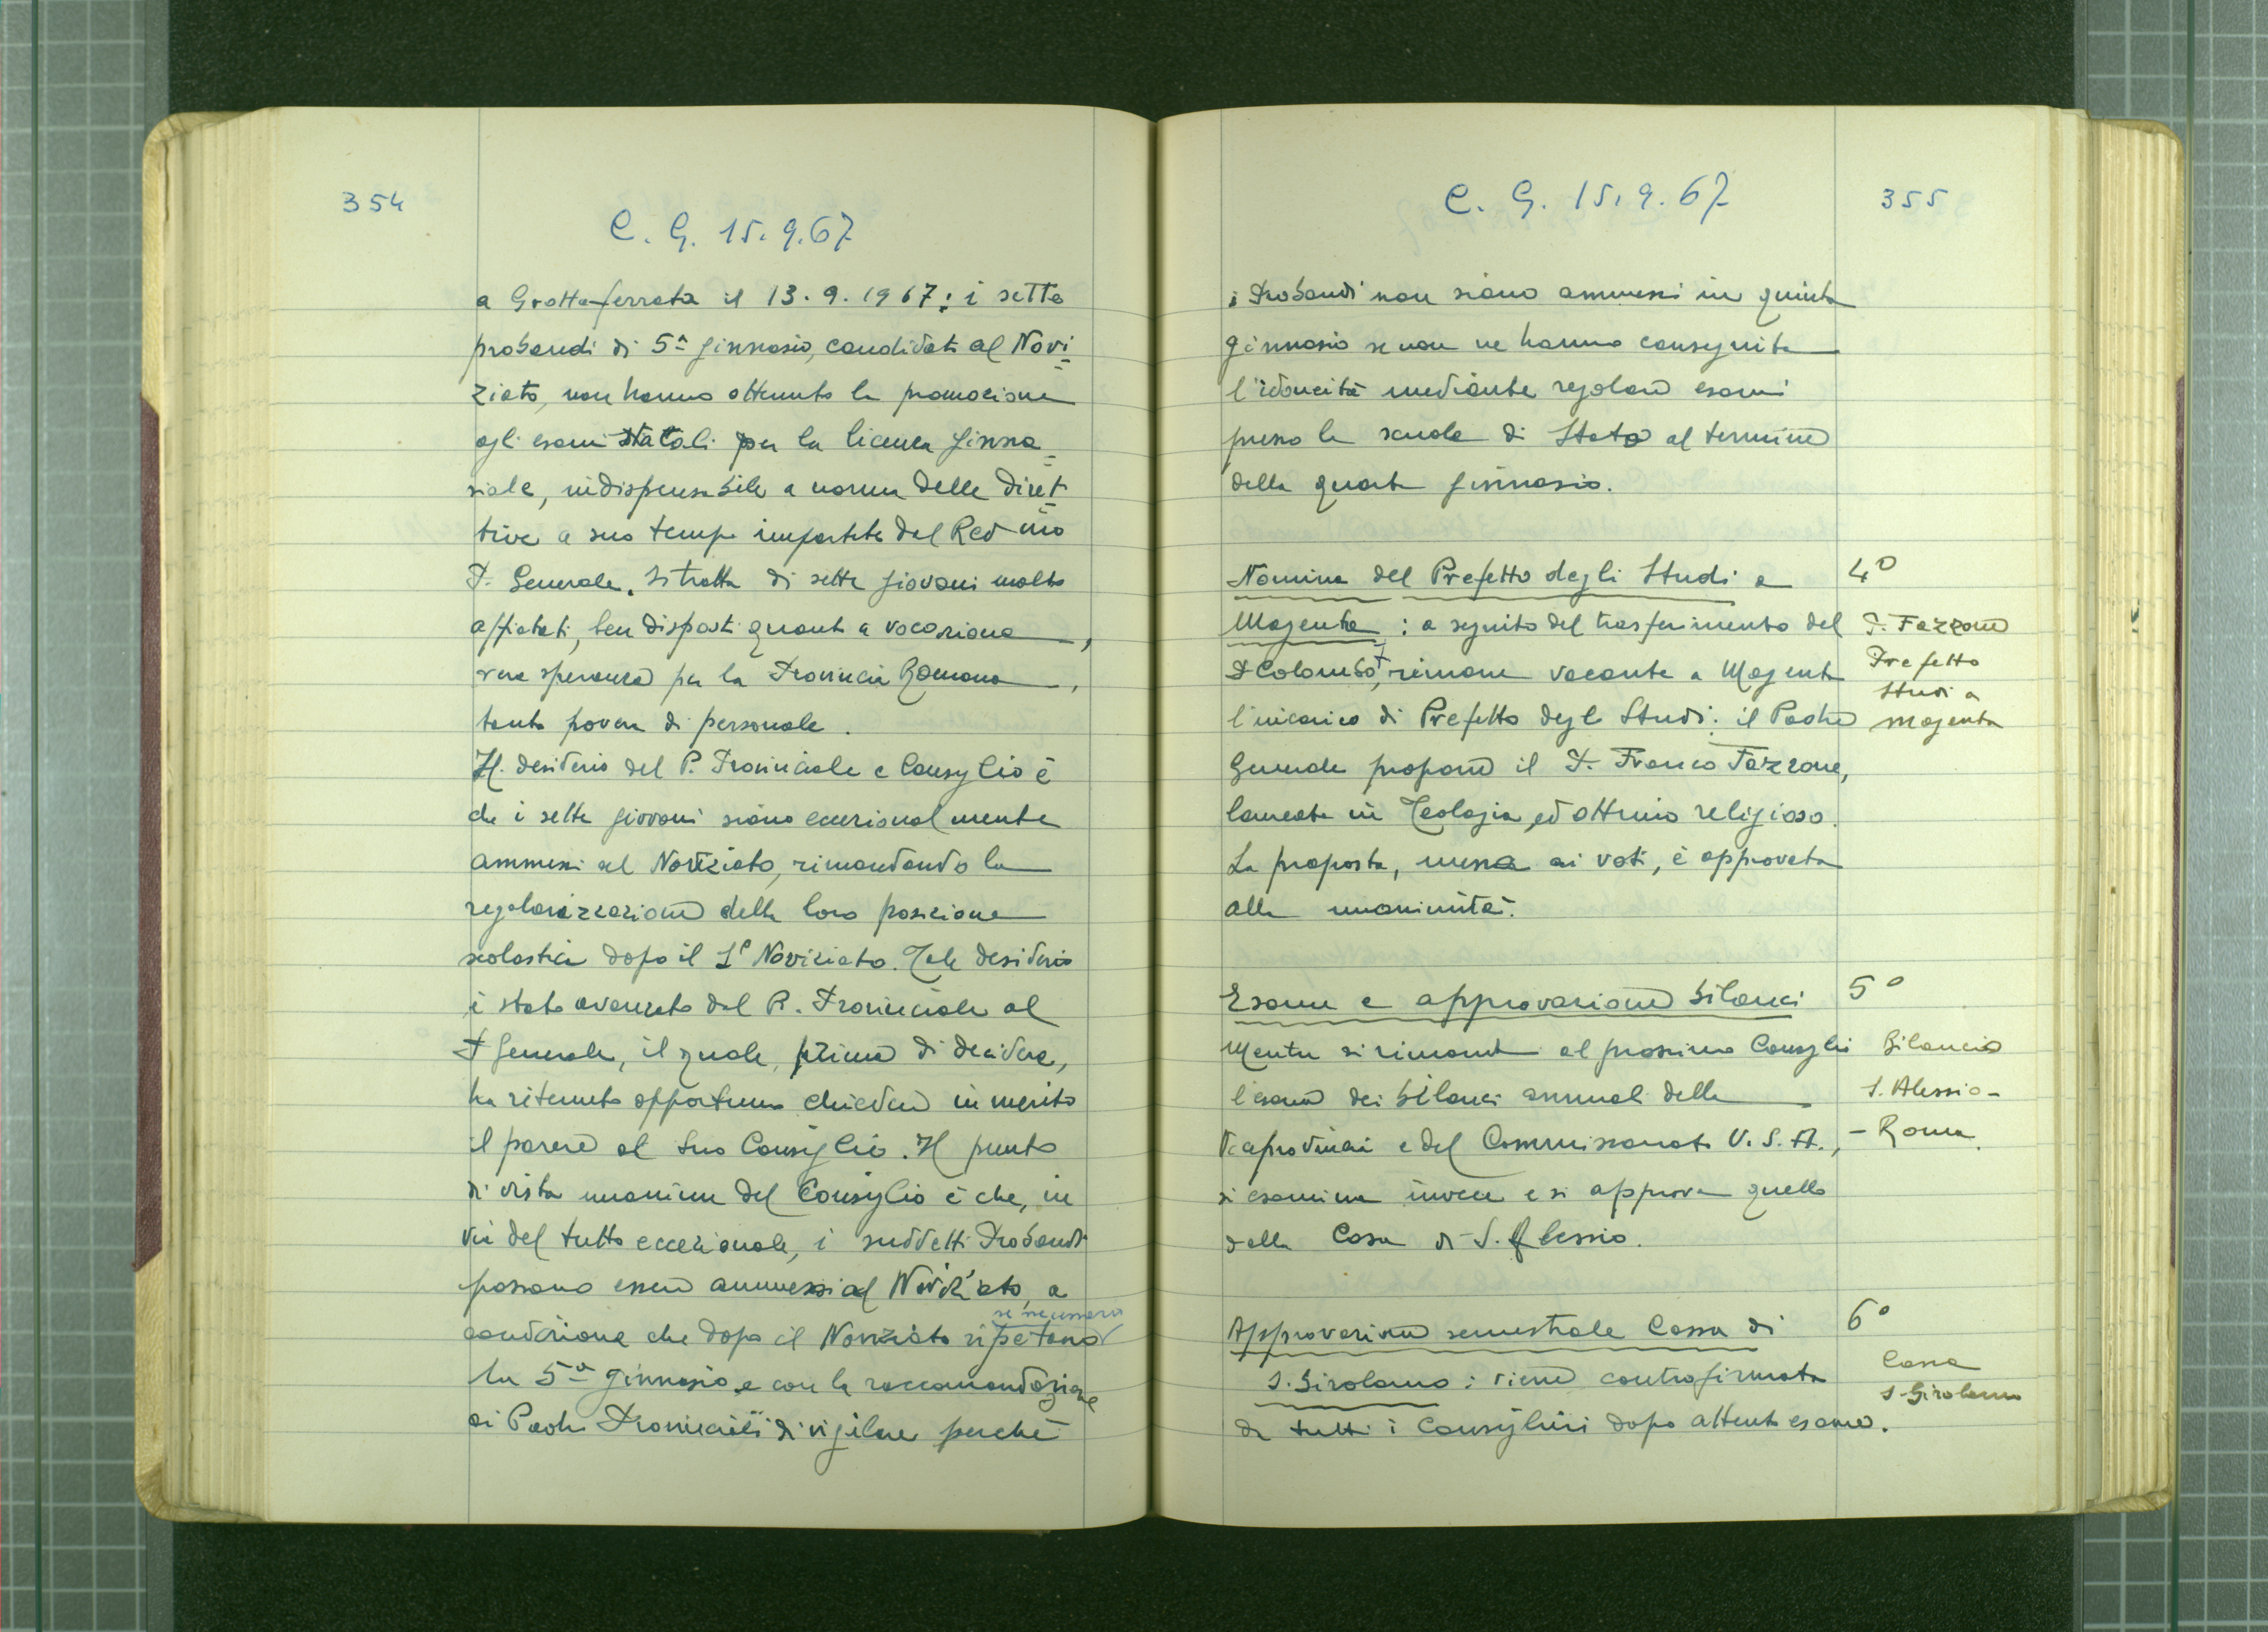 354
C. G. 15.9.67
a Grottaferrata il 13.9.1967: i sette
probandi di 5ª ginnasio, candidati al Novi=
ziato, non hanno ottenuto la promozione
agli esami statali per la licenza ginna=
siale, indispensabile a norma delle diret=
tive a suo tempo impartite dal Rev mo
P. Generale. Si tratta di sette giovani molto
affiatati, ben disposti quanto a vocazione,
vera speranza per la Provincia Romana,
tanto povera di personale.
Il desiderio del P. Provinciale e Consiglio è
che i sette giovani siano eccezionalmente
ammessi al Noviziato, rimandando la
regolarizzazione della loro posizione
scolastica dopo il 1º Noviziato. Tale desiderio
è stato avanzato dal P. Provinciale al
P Generale, il quale, prima di decidere,
ha ritenuto opportuno chiedere in merito
il parere al suo Consiglio. Il punto
di vista unanime del Consiglio è che, in
via del tutto eccezionale, i suddetti Probandi
possano essere ammessi al Noviziato, a
se necessario
condizione che dopo il Noviziato ripetano
la 5ª ginnasio e con la raccomandazione
ai Padri Provinciali di vigilare perchè
C. G. 15.9.67
355
i Probandi non siano ammessi in quinta
ginnasio se non ne hanno conseguita
l'idoneità mediante regolari esami
presso le scuole di Stato al termine
della quarta ginnasio.
Nomina del Prefetto degli Studi a
4º
Magenta: a seguito del trasferimento del
P. Fazzone
Prefetto
Studi a
Magenta
P Colombo, rimane vacante a Magenta
l'incarico di Prefetto degli Studi: il Padre
Generale propone il P. Franco Fazzone,
laureato in Teologia ed ottimo religioso.
La proposta, messa ai voti, è approvata
alla unanimità.
Esame e approvazione bilanci
5º
Mentre si rimanda al prossimo Consiglio
Bilancio
S. Alessio -
- Roma.
l'esame dei bilanci annuali delle
Viceprovincie e del Commissariato U.S.A.,
si esamina invece e si approva quello
della Casa di S. Alessio.
Approvazione semestrale Cassa di
6º
S. Girolamo: viene controfirmata
Cassa
S. Girolamo
da tutti i Consiglieri dopo attento esame.